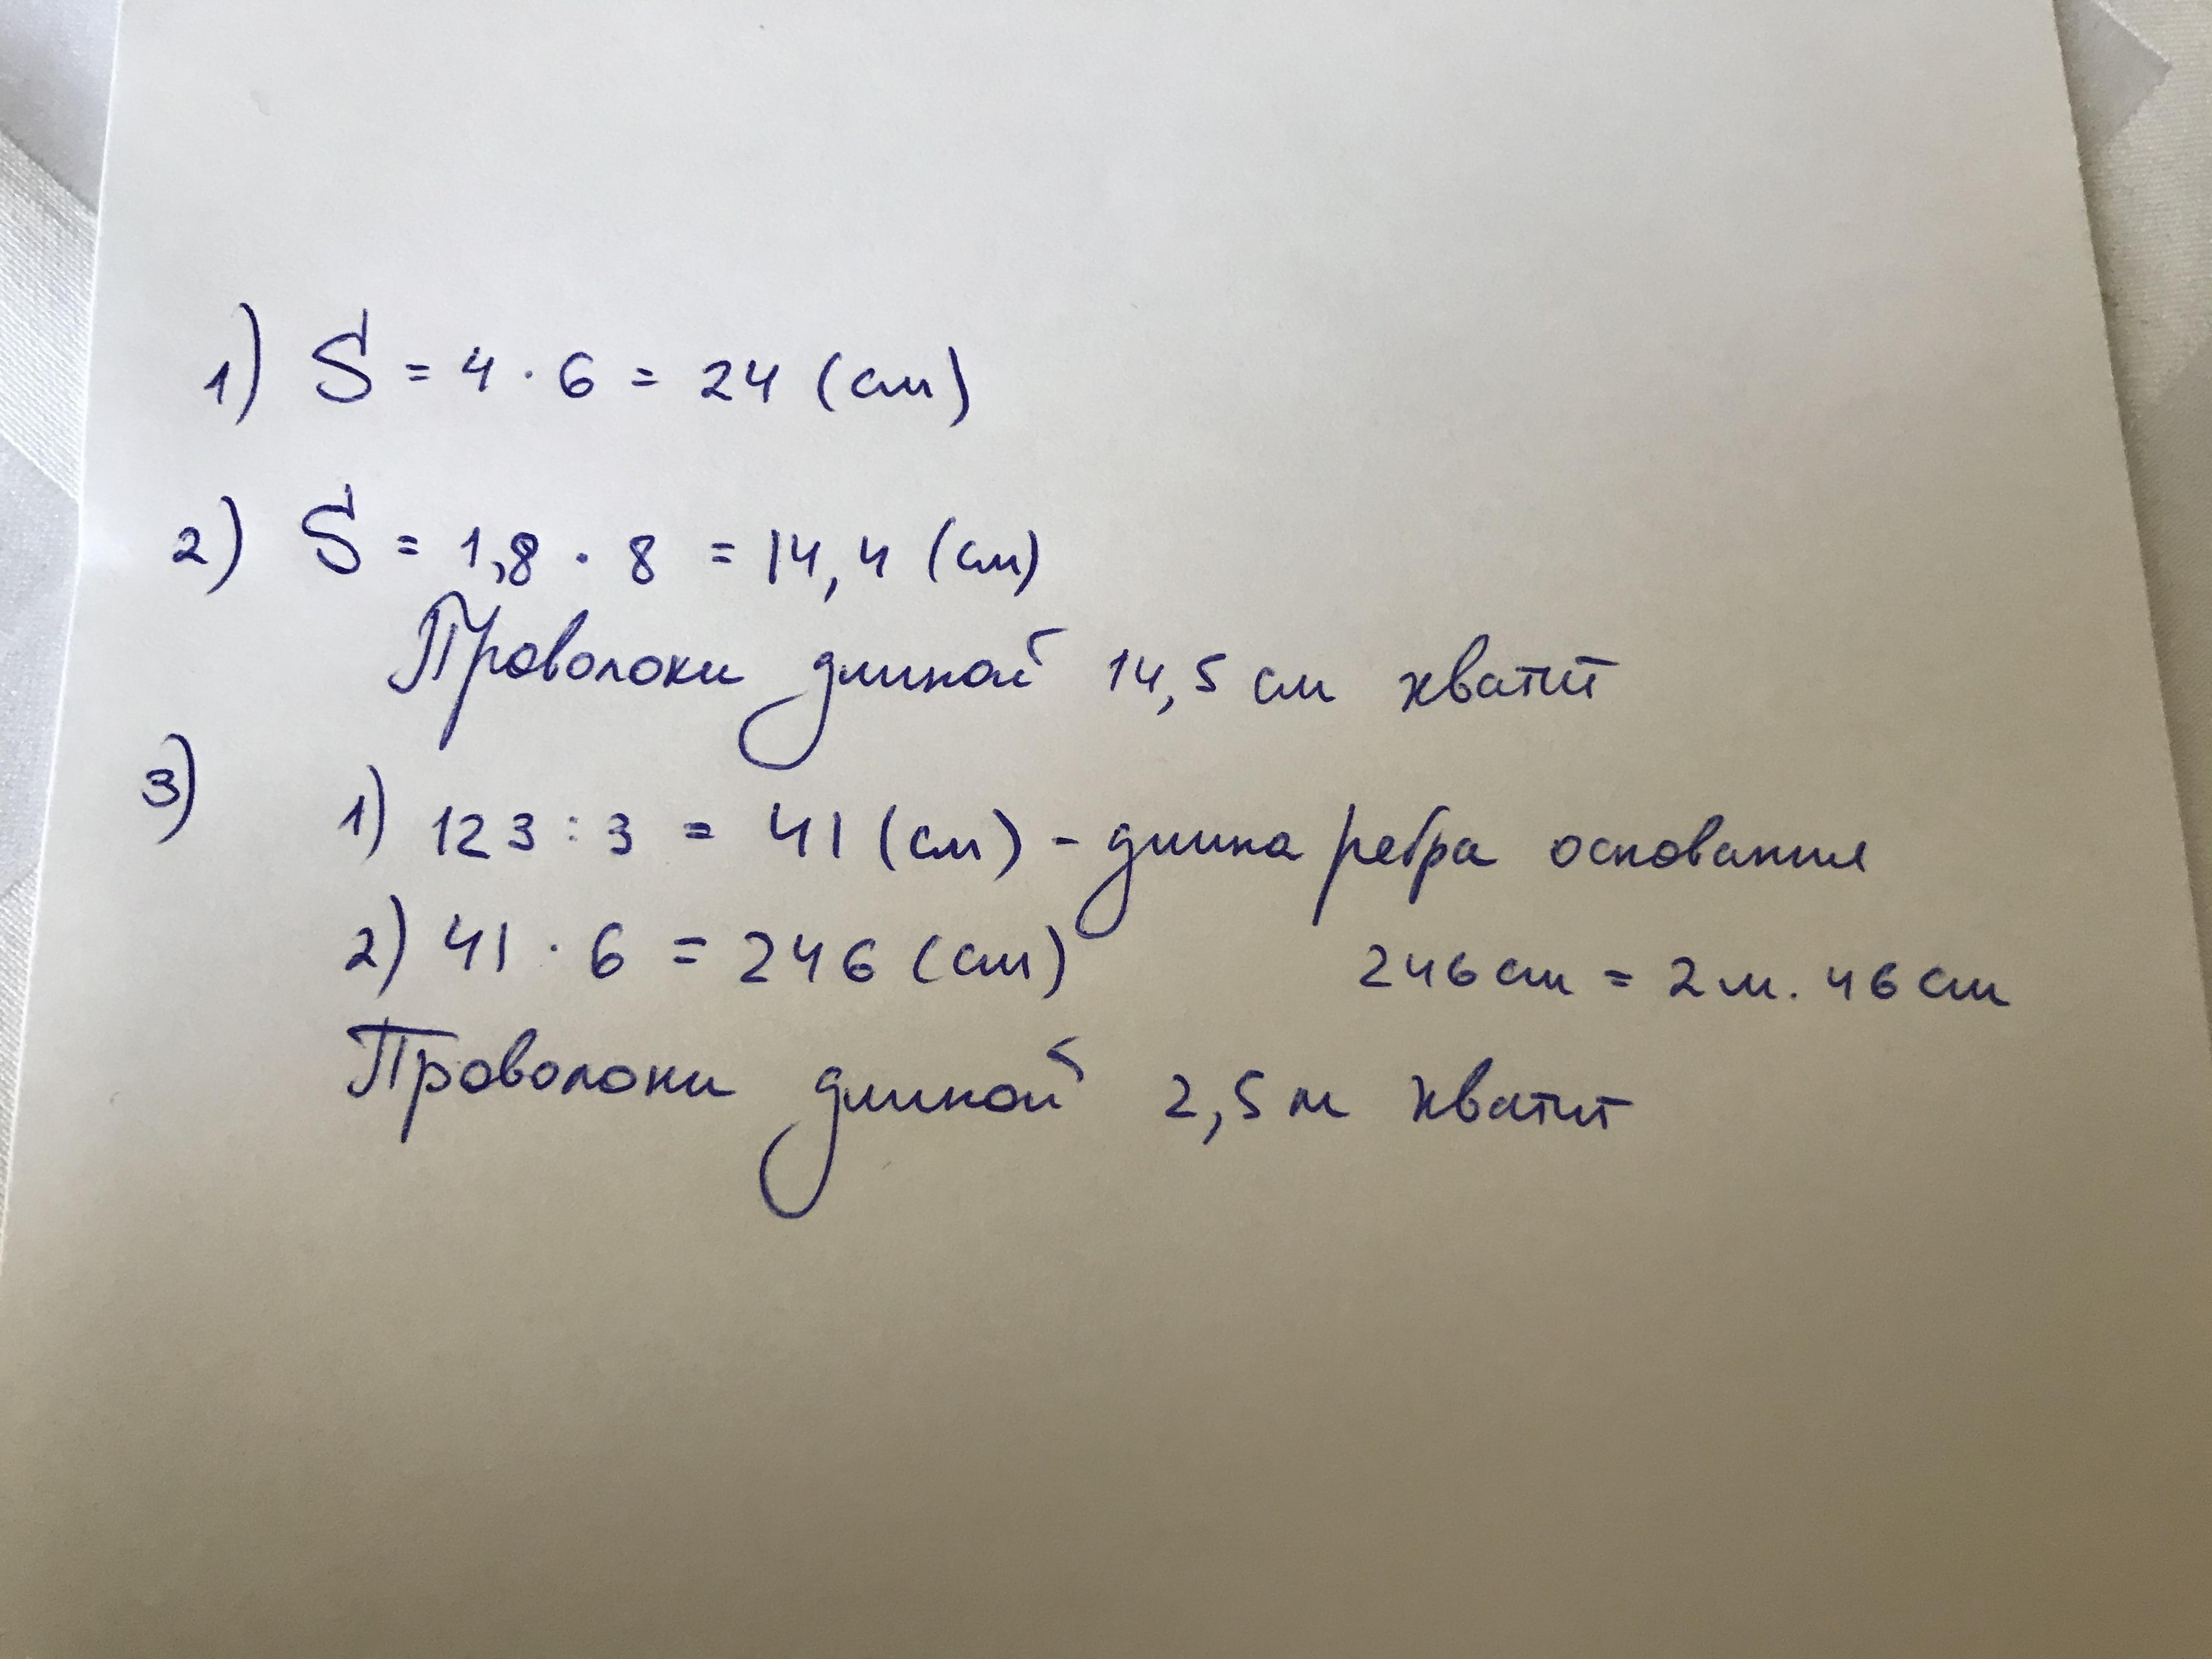 1) S = 4 · 6 = 24 (см)
2) S = 1,8 · 8 = 14,4 (см)
Проволоки длиной 14,5 см хватит
3) 1) 123 : 3 = 41 (см) - длина ребра основания
2) 41 · 6 = 246 (см) 246 см = 2 м. 46 см
Проволоки длиной 2,5 м хватит